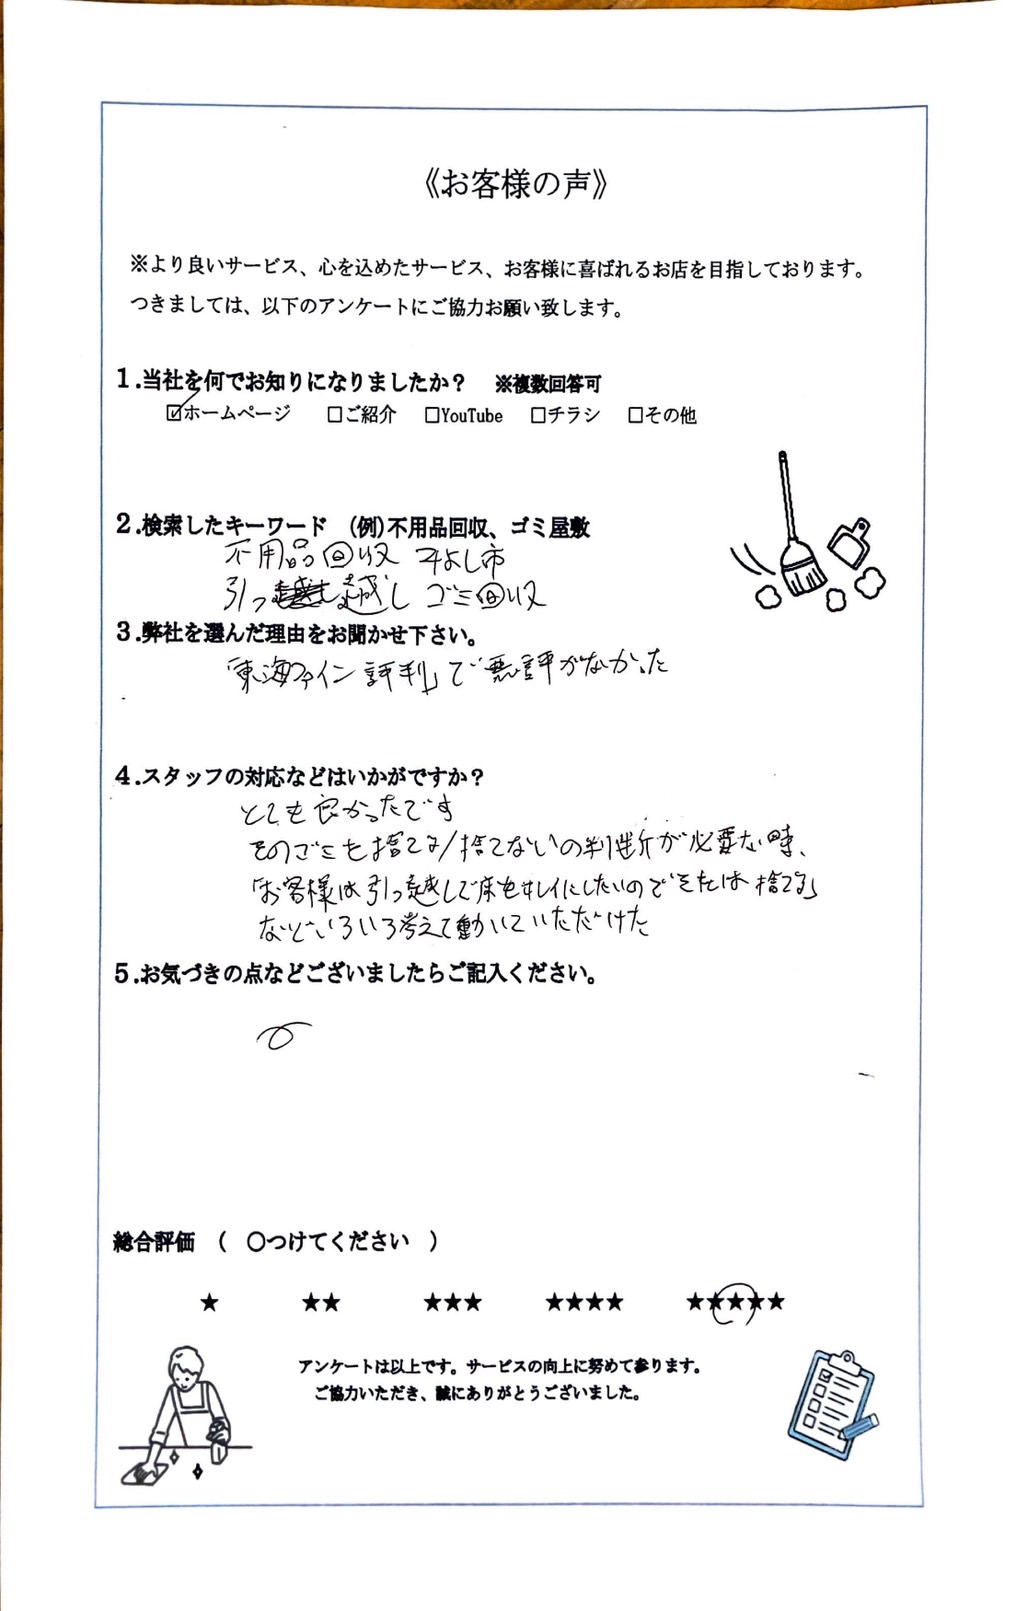 《お客様の声》
※より良いサービス、心を込めたサービス、お客様に喜ばれるお店を目指しております。
つきましては、以下のアンケートにご協力お願い致します。
1.当社を何でお知りになりましたか？　※複数回答可
☑ホームページ　□ご紹介　□YouTube　□チラシ　□その他
2.検索したキーワード　(例)不用品回収、ゴミ屋敷
不用品回収 みよし市
引っ越し ゴミ回収
3.弊社を選んだ理由をお聞かせ下さい。
「東海ファイン 評判」で悪評がなかった
4.スタッフの対応などはいかがですか？
とても良かったです
そのごみを捨てる/捨てないの判断が必要な時、
「お客様は引っ越しで床もキレイにしたいのできたは捨てる」
などいろいろ考えて動いていただけた
5.お気づきの点などございましたらご記入ください。
総合評価　(　〇つけてください　)
★　★★　★★★　★★★★　★★★★★
アンケートは以上です。サービスの向上に努めて参ります。
ご協力いただき、誠にありがとうございました。